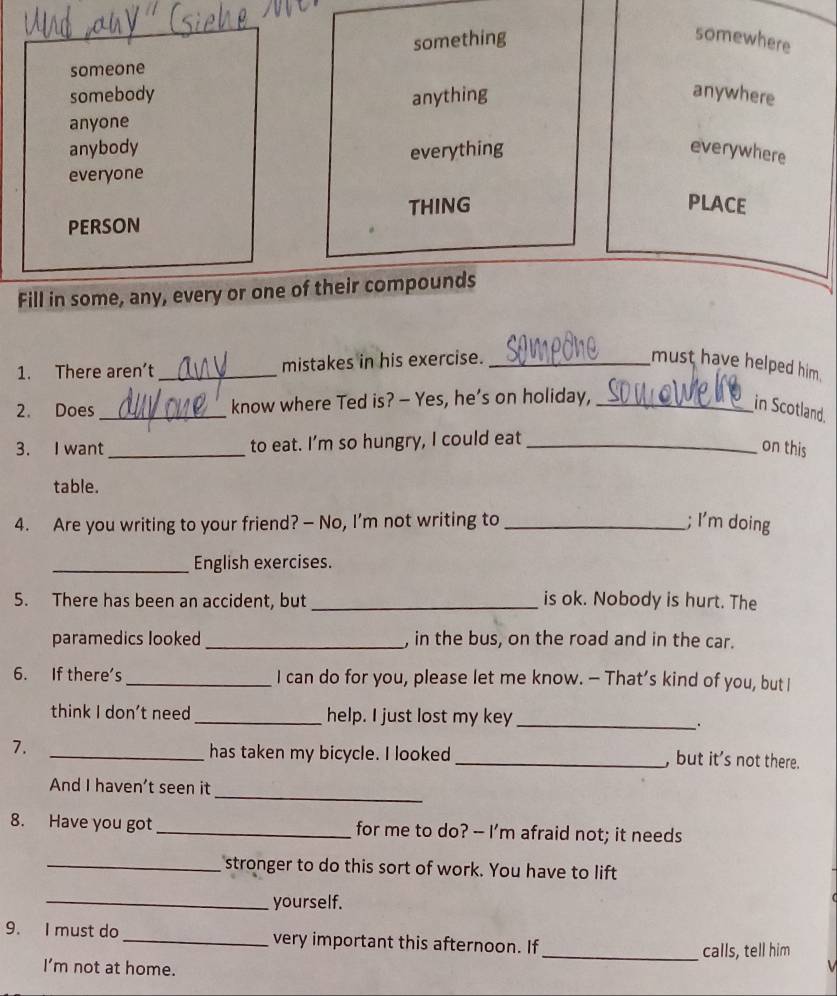 und "any" (siehe
someone
somebody
anyone
anybody
everyone
PERSON
something
anything
everything
THING
somewhere
anywhere
everywhere
PLACE
Fill in some, any, every or one of their compounds
1. There aren't any mistakes in his exercise. someone must have helped him.
2. Does anyone know where Ted is? – Yes, he's on holiday, somewhere in Scotland.
3. I want ____________ to eat. I'm so hungry, I could eat ____________ on this
table.
4. Are you writing to your friend? – No, I'm not writing to ____________; I'm doing
____________ English exercises.
5. There has been an accident, but ____________ is ok. Nobody is hurt. The
paramedics looked ____________, in the bus, on the road and in the car.
6. If there's ____________ I can do for you, please let me know. – That's kind of you, but I
think I don't need ____________ help. I just lost my key ____________.
7. ____________ has taken my bicycle. I looked ____________, but it's not there.
And I haven't seen it ____________
8. Have you got ____________ for me to do? – I'm afraid not; it needs
____________ stronger to do this sort of work. You have to lift
____________ yourself.
9. I must do ____________ very important this afternoon. If ____________ calls, tell him
I'm not at home.